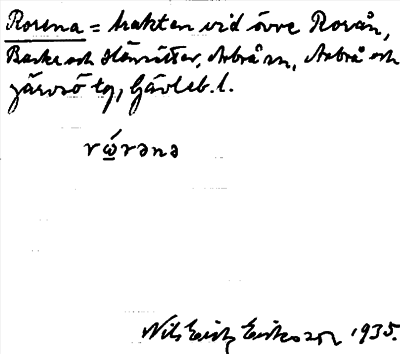 Rorena = trakten vid övre Rorån,
Backe och Hänsätter, Arbrå sn, Arbrå och
Järvsö tg, Gävleb. l.
rώrənə
Nils Erik Eriksson 1935.